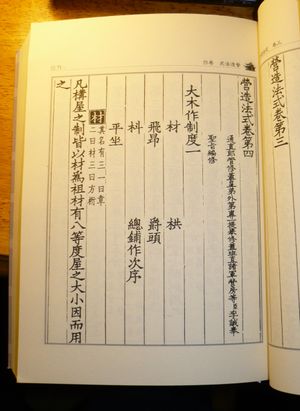 營造法式卷第三
營造法式 卷四
營造法式卷第四
通直郎管修蓋皇弟外第專一提舉修蓋班直諸軍營房等臣李誡奉
聖旨編修
大木作制度一
材 栱
飛昂 爵頭
枓 總鋪作次序
平坐
材
其名有三一曰章
二曰材三曰方桁
凡構屋之制皆以材為祖材有八等度屋之大小因而用
之